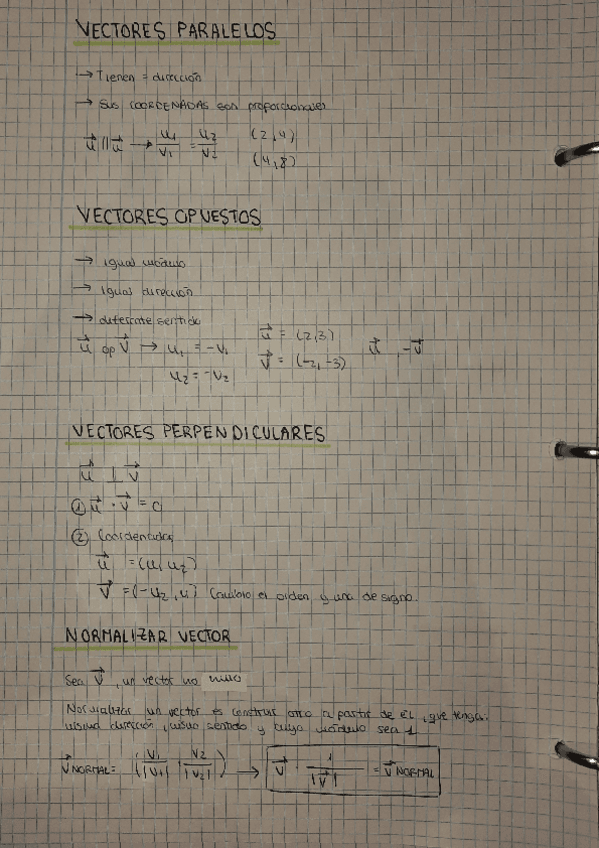 VECTORES PARALELOS
→ Tienen = dirección
→ Sus COORDENADAS son proporcionales
u⃗ || u⃗ → u₁/v₁ = u₂/v₂ (2,4)
(4,8)
VECTORES OPUESTOS
→ igual módulo
→ igual dirección
→ diferente sentido
u⃗ op v⃗ → u₁ = -v₁ u⃗ = (2,3) u⃗, -v⃗
u₂ = -v₂ v⃗ = (-2,-3)
VECTORES PERPENDICULARES
u⃗ ⊥ v⃗
① u⃗ · v⃗ = 0
② Coordenadas
u⃗ = (u₁ u₂)
v⃗ = (-u₂, u) Cambio el orden y uno de signo.
NORMALIZAR VECTOR
Sea v⃗, un vector no nulo
Normalizar un vector es construir otro a partir de él, que tenga:
misma dirección, mismo sentido y cuyo módulo sea 1
v⃗ NORMAL = (v₁/|v₁|, v₂/|v₂|) → v⃗ · 1/|v⃗| = v⃗ NORMAL